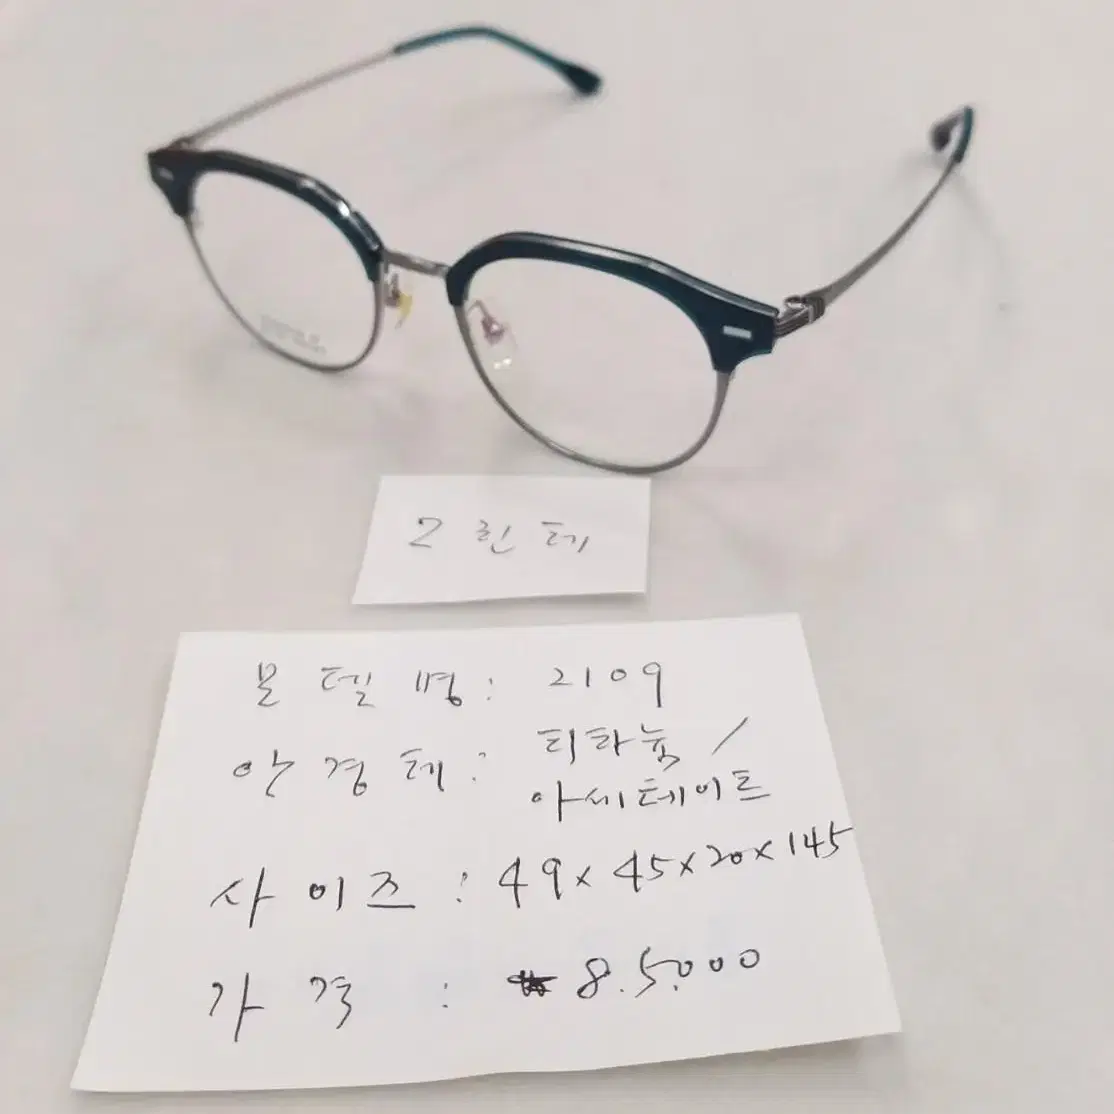 그린테
모델명: 2109
안경테: 티타늄/
아세테이트
사이즈: 49x45x20x145
가격: ₩8.5.000